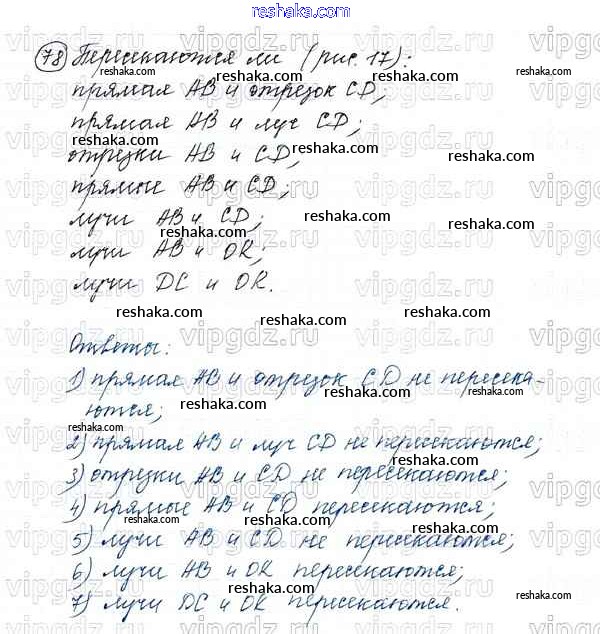 reshaka.com
78 Пересекаются ли (рис. 17):
прямая АВ и отрезок CD;
прямая АВ и луч CD;
отрезки АВ и CD;
прямые АВ и CD;
лучи АВ и CD;
лучи АВ и ОК;
лучи DC и ОК.
Ответы:
1) прямая АВ и отрезок CD не пересека-
ются;
2) прямая АВ и луч CD не пересекаются;
3) отрезки АВ и CD не пересекаются;
4) прямые АВ и CD пересекаются;
5) лучи АВ и CD не пересекаются;
6) лучи АВ и ОК пересекаются;
7) лучи DC и ОК пересекаются.